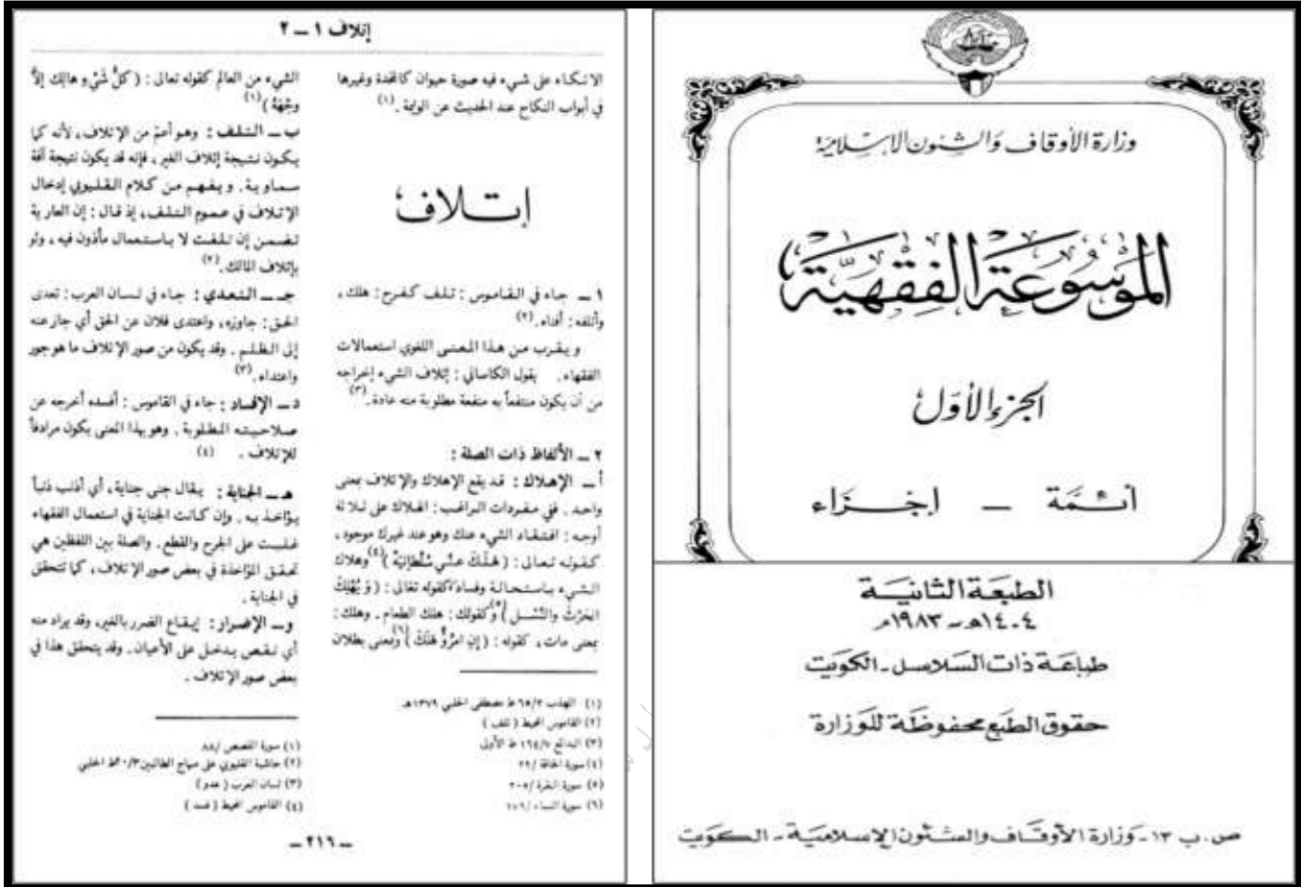 وزارة الأوقاف والشئون الإسلامية
الموسوعة الفقهية
الجزء الأول
أئمة – إجزاء
الطبعة الثانية
١٤٠٤هـ - ١٩٨٣م
طباعة ذات السلاسل - الكويت
حقوق الطبع محفوظة للوزارة
ص. ب ١٣ - وزارة الأوقاف والشئون الإسلامية - الكويت
إتلاف ١ – ٢
الاتكاء على شيء فيه صورة حيوان كالمخدة وغيرها
في أبواب النكاح عند الحديث عن الوليمة . (١)
إتلاف
١ – جاء في القاموس : تلف كفرح : هلك ،
وأتلفه : أفناه . (٢)
ويقرب من هذا المعنى اللغوي استعمالات
الفقهاء . يقول الكاساني : إتلاف الشيء إخراجه
من أن يكون منتفعاً به منفعة مطلوبة منه عادة . (٣)
٢ – الألفاظ ذات الصلة :
أ – الإهلاك : قد يقع الإهلاك والإتلاف بمعنى
واحد . ففي مفردات الراغب : الهلاك على ثلاثة
أوجه : افتقاد الشيء عنك وهو عند غيرك موجود ،
كقوله تعالى : ( هَلَكَ عَنِّي سُلْطَانِيَهْ ) (٤) وهلاك
الشيء باستحالة وفساد كقوله تعالى : ( وَيُهْلِكَ
الحَرْثَ والنَّسْلَ ) (٥) وكقولك : هلك الطعام . وهلك :
بمعنى مات ، كقوله : ( إن امْرُؤٌ هَلَكَ ) (٦) وبمعنى بطلان
(١) المهذب ٢/ ٦٥ ط مصطفى الحلبي ١٣٧٩هـ
(٢) القاموس المحيط ( تلف )
(٣) البدائع ٧/ ١٦٤ ط الأولى
(٤) سورة الحاقة / ٢٩
(٥) سورة البقرة / ٢٠٥
(٦) سورة النساء / ١٧٦
الشيء من العالم كقوله تعالى : ( كلُّ شَيْءٍ هالِك إلاَّ
وجْهَهُ ) (١)
ب – التلف : وهو أعم من الإتلاف ، لأنه كما
يكون نتيجة إتلاف الغير ، فإنه قد يكون نتيجة آفة
سماوية . ويفهم من كلام القليوبي إدخال
الإتلاف في عموم التلف ، إذ قال : إن العارية
تضمن إن تلفت لا باستعمال مأذون فيه ، ولو
بإتلاف المالك . (٢)
جـ – التعدي : جاء في لسان العرب : تعدى
الحق : جاوزه ، واعتدى فلان عن الحق أي جاز عنه
إلى الظلم . وقد يكون من صور الإتلاف ما هو جور
واعتداء . (٣)
د – الإفساد : جاء في القاموس : أفسده أخرجه عن
صلاحيته المطلوبة . وهو بهذا المعنى يكون مرادفاً
للإتلاف . (٤)
هـ – الجناية : يقال جنى جناية ، أي أذنب ذنباً
يؤاخذ به . وإن كانت الجناية في استعمال الفقهاء
غلبت على الجرح والقطع . والصلة بين اللفظين هي
تحقق المؤاخذة في بعض صور الإتلاف ، كما تتحقق
في الجناية .
و – الإضرار : إيقاع الضرر بالغير ، وقد يراد منه
أي نقص يدخل على الأعيان . وقد يتحقق هذا في
بعض صور الإتلاف .
(١) سورة القصص / ٨٨
(٢) حاشية القليوبي على منهاج الطالبين ٣/ ٢٠ ط الحلبي
(٣) لسان العرب ( عدو )
(٤) القاموس المحيط ( فسد )
– ٢١٦ –